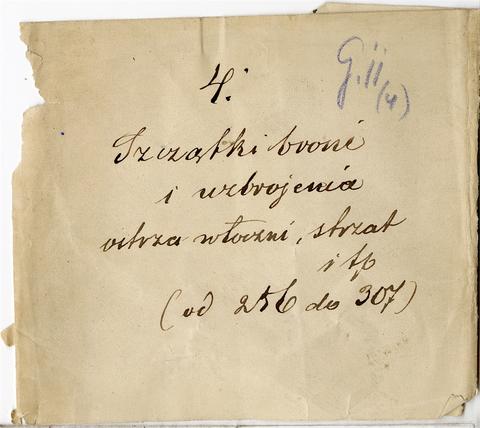 4.
G. II
(4)
Szczątki broni
i uzbrojenia
ostrza włóczni, strzał
i tp
(od 256 do 307)